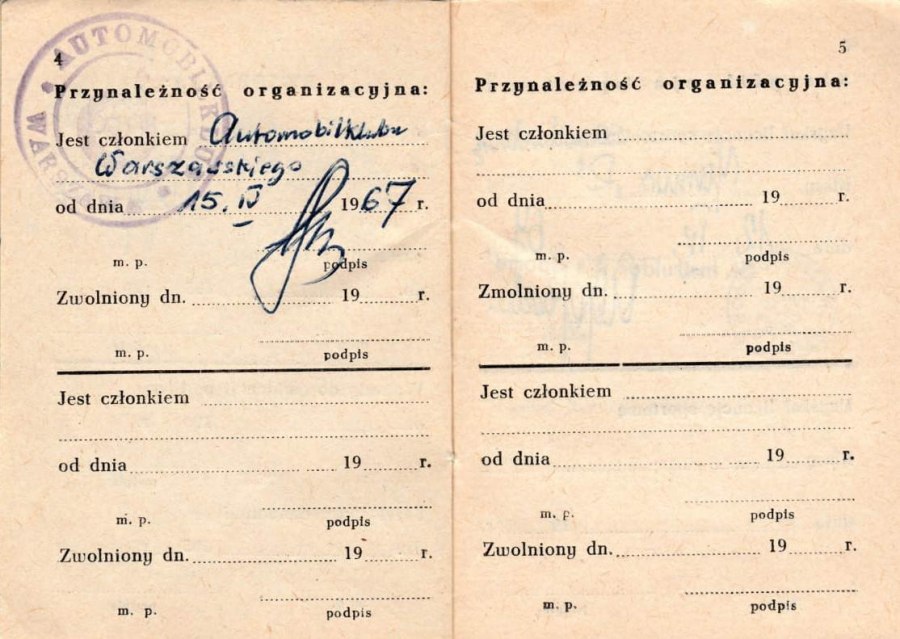 4
AUTOMOBILKLUB
WARSZAWSKI
Przynależność organizacyjna:
Jest członkiem Automobilklubu
Warszawskiego
od dnia 15. IV 1967 r.
m. p. podpis
Zwolniony dn. 19 r.
m. p. podpis
Jest członkiem
od dnia 19 r.
m. p. podpis
Zwolniony dn. 19 r.
m. p. podpis
5
Przynależność organizacyjna:
Jest członkiem
od dnia 19 r.
m. p. podpis
Zmolniony dn. 19 r.
m. p. podpis
Jest członkiem
od dnia 19 r.
m. p. podpis
Zwolniony dn. 19 r.
m. p. podpis